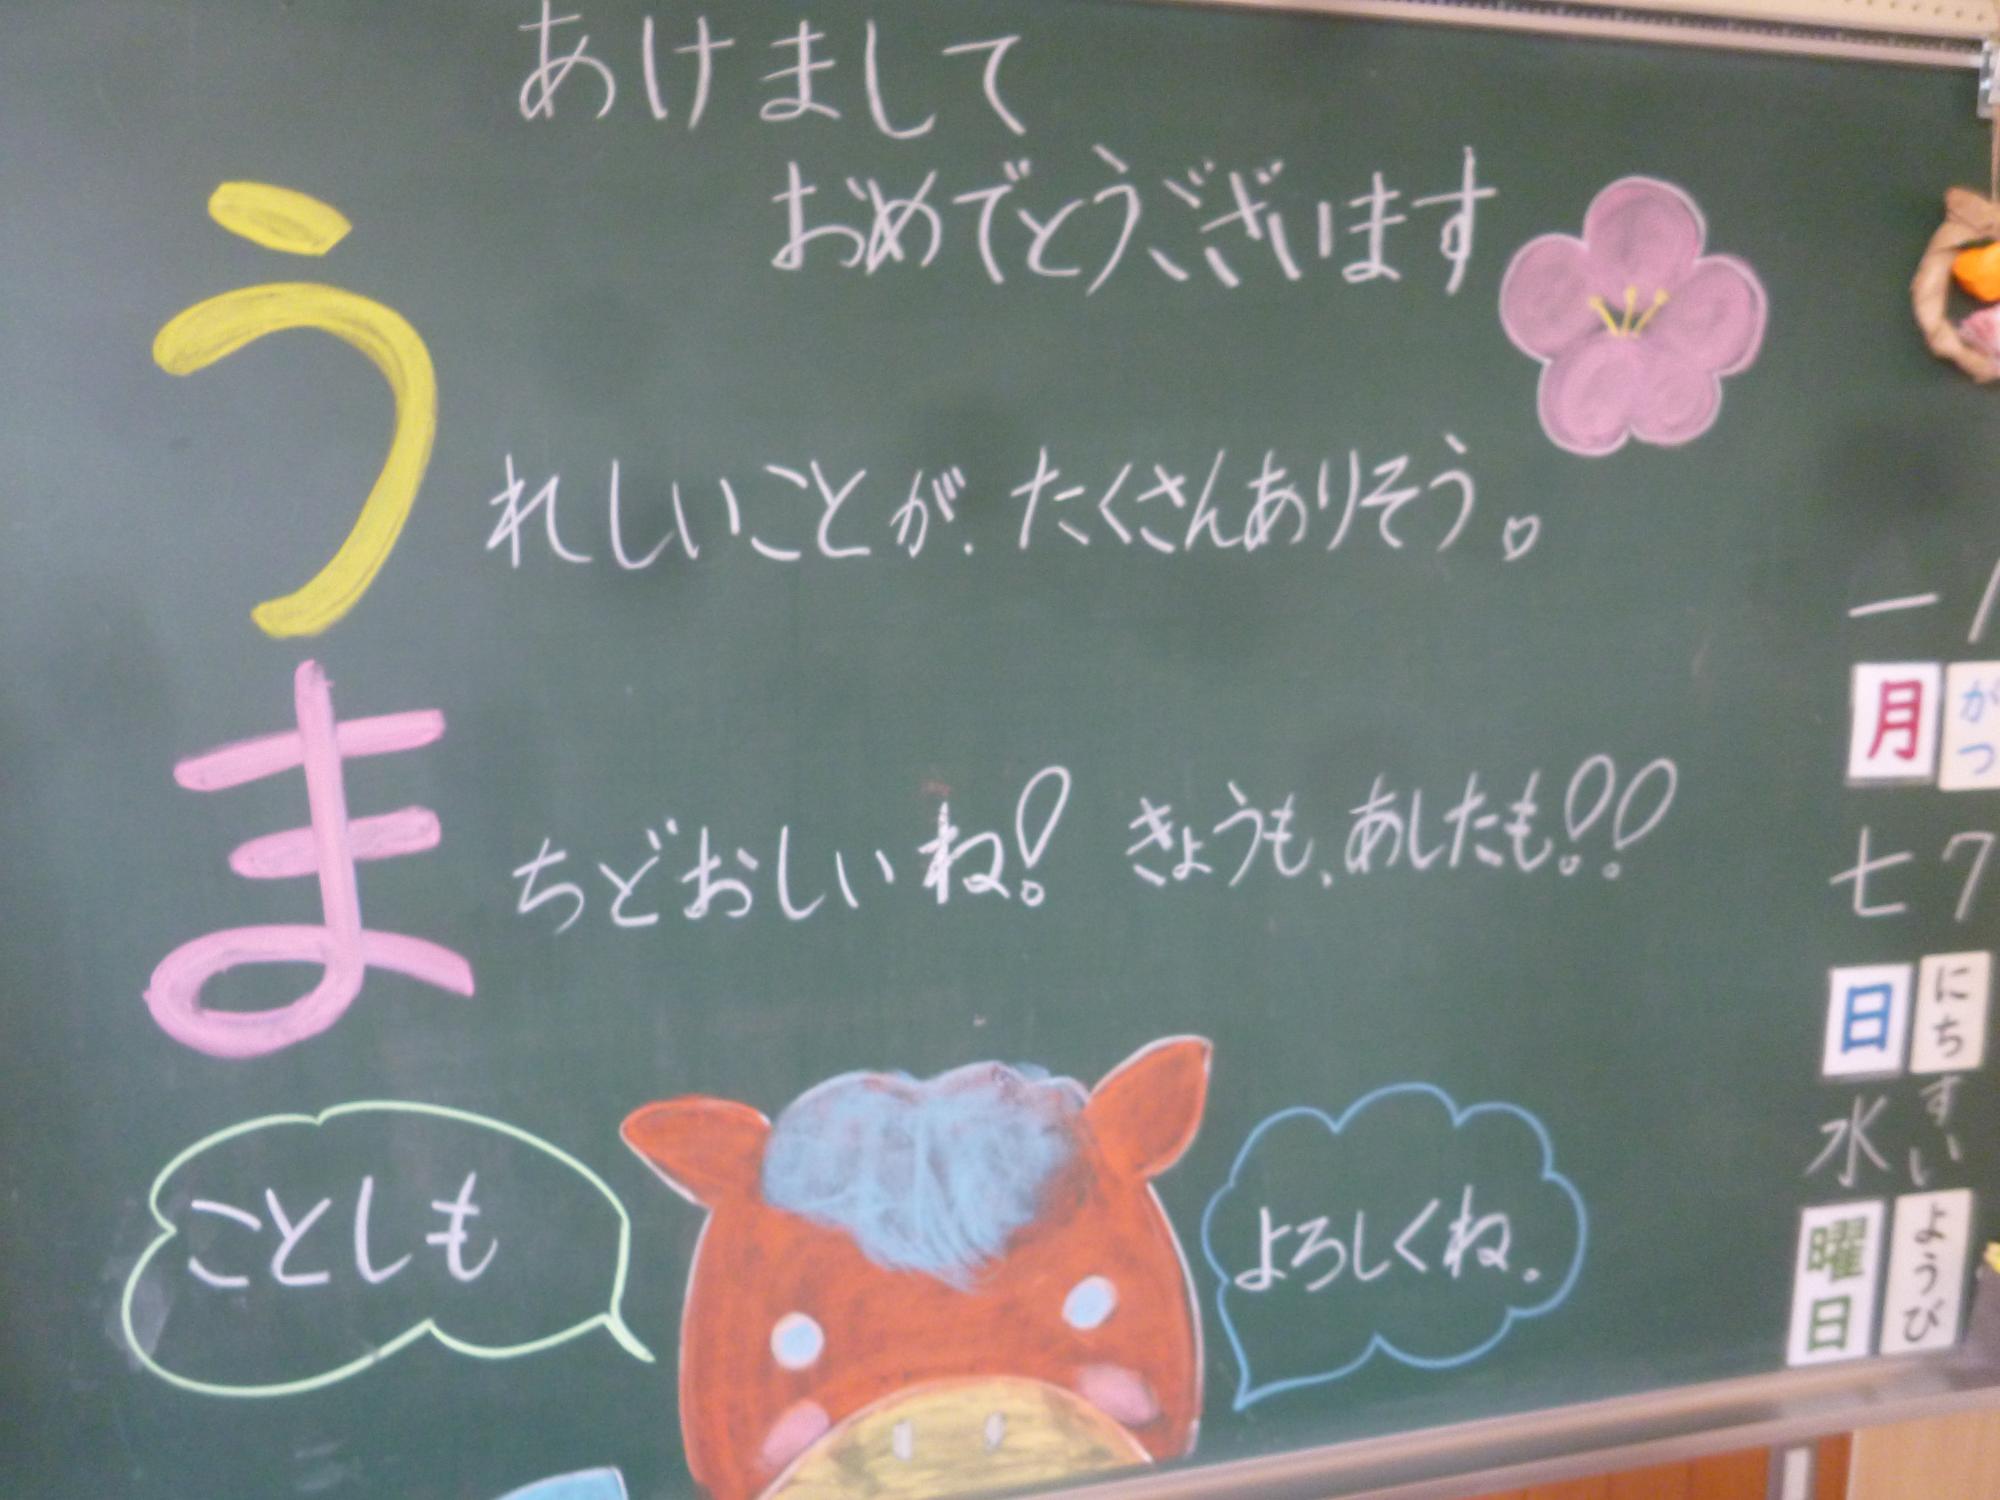 あけまして
おめでとうございます
うれしいことが、たくさんありそう。
まちどおしいね! きょうも、あしたも!!
ことしも
よろしくね。
一
月 がつ
七 7
日 にち
水 すい
曜日 ようび